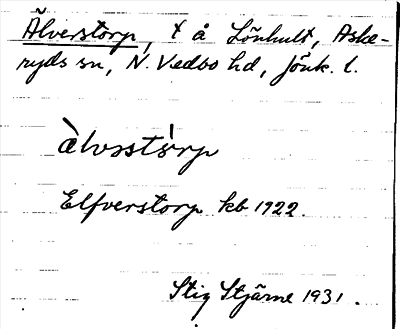 Älverstorp, t å Lönhult, Aske-
ryds sn, N. Vedbo hd, Jönk. l.
älvstòrp
Elfverstorp kb 1922.
Stig Stjärne 1931.